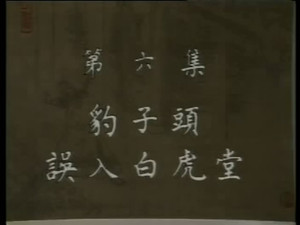 第六集
豹子頭
誤入白虎堂